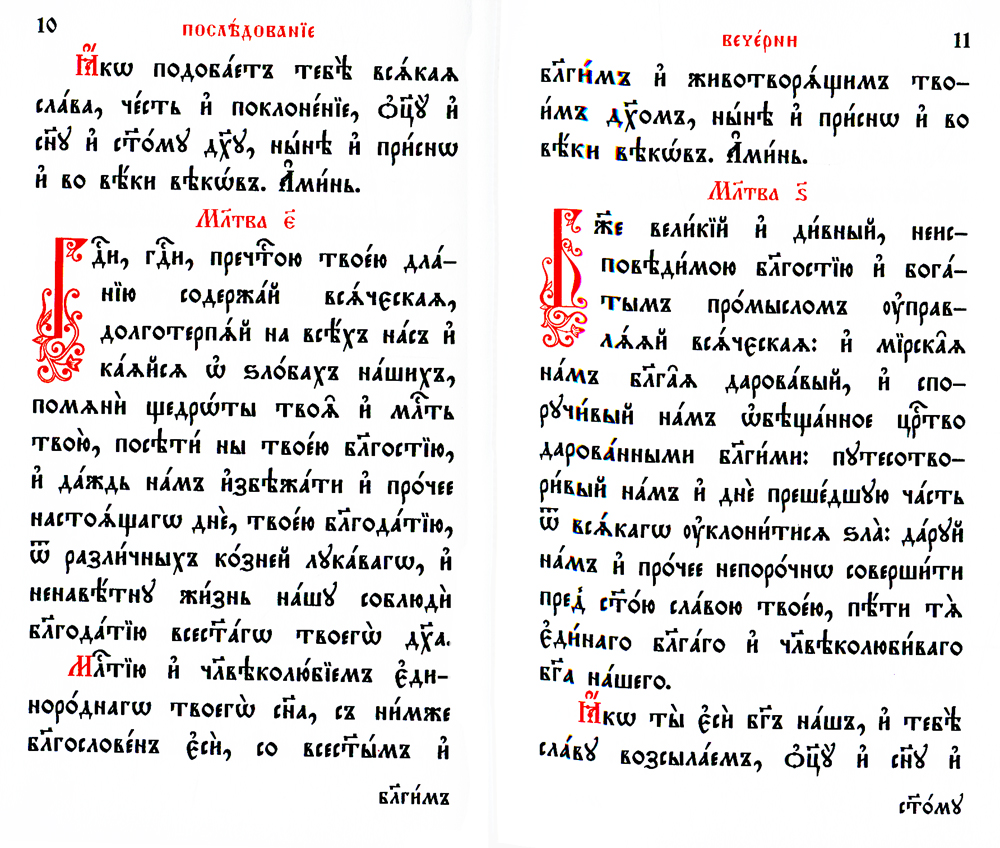 10
послѣ́дованїе
Ꙗ҆́кѡ подоба́етъ тебѣ̀ всѧ́каѧ
сла́ва, че́сть и҆ поклоне́нїе, ѻ҆ц҃ꙋ̀ и҆
сн҃ꙋ и҆ ст҃о́мꙋ дх҃ꙋ, ны́нѣ и҆ при́снѡ
и҆ во вѣ́ки вѣкѡ́въ. А҆ми́нь.
Мл҃тва є҃
Гдⷭ҇и, гдⷭ҇и, пречⷭ҇тою твое́ю дла́-
нїю содержа́й всѧ́чєскаѧ,
долготерпѧ́й на всѣ́хъ на́съ и҆
ка́ѧйсѧ ѡ҆ ѕло́бахъ на́шихъ,
помѧнѝ щедрѡ́ты твоѧ̑ и҆ млⷭ҇ть
твою̀, посѣти́ ны твое́ю бл҃гостїю,
и҆ да́ждь на́мъ и҆збѣжа́ти и҆ про́чее
настоѧ́щагѡ днѐ, твое́ю бл҃года́тїю,
ѿ разли́чныхъ ко́зней лꙋка́вагѡ, и҆
ненавѣ́тнꙋ жи́знь на́шꙋ соблюдѝ
бл҃года́тїю всест҃а́гѡ твоегѡ̀ дх҃а.
Млⷭ҇тїю и҆ чл҃вѣколю́бїемъ є҆ди-
норо́днагѡ твоегѡ̀ сн҃а, съ ни́мже
бл҃гослове́нъ є҆сѝ, со всест҃ы́мъ и҆
бл҃ги́мъ
вече́рни
11
бл҃ги́мъ и҆ животворѧ́щимъ тво-
и́мъ дх҃омъ, ны́нѣ и҆ при́снѡ и҆ во
вѣ́ки вѣкѡ́въ. А҆ми́нь.
Мл҃тва ѕ҃
Бж҃е вели́кїй и҆ ди́вный, неис-
повѣди́мою бл҃гостїю и҆ бога́-
тымъ про́мысломъ ᲂу҆прав-
лѧ́ѧй всѧ́чєскаѧ: и҆ мїрска̑ѧ
на́мъ бл҃га̑ѧ дарова́вый, и҆ спо-
рꙋчи́вый на́мъ ѡ҆бѣща́нное црⷭ҇тво
дарова́нными бл҃ги́ми: пꙋтесотво-
ри́вый на́мъ и҆ днѐ преше́дшꙋю ча́сть
ѿ всѧ́кагѡ ᲂу҆клони́тисѧ ѕла̀: да́рꙋй
на́мъ и҆ про́чее непоро́чнѡ соверши́ти
пред̾ ст҃о́ю сла́вою твое́ю, пѣ́ти тѧ̀
є҆ди́наго бл҃га́го и҆ чл҃вѣколюби́ваго
бг҃а на́шего.
Ꙗ҆́кѡ ты̀ є҆сѝ бг҃ъ на́шъ, и҆ тебѣ̀
сла́вꙋ возсыла́емъ, ѻ҆ц҃ꙋ̀ и҆ сн҃ꙋ и҆
ст҃о́мꙋ